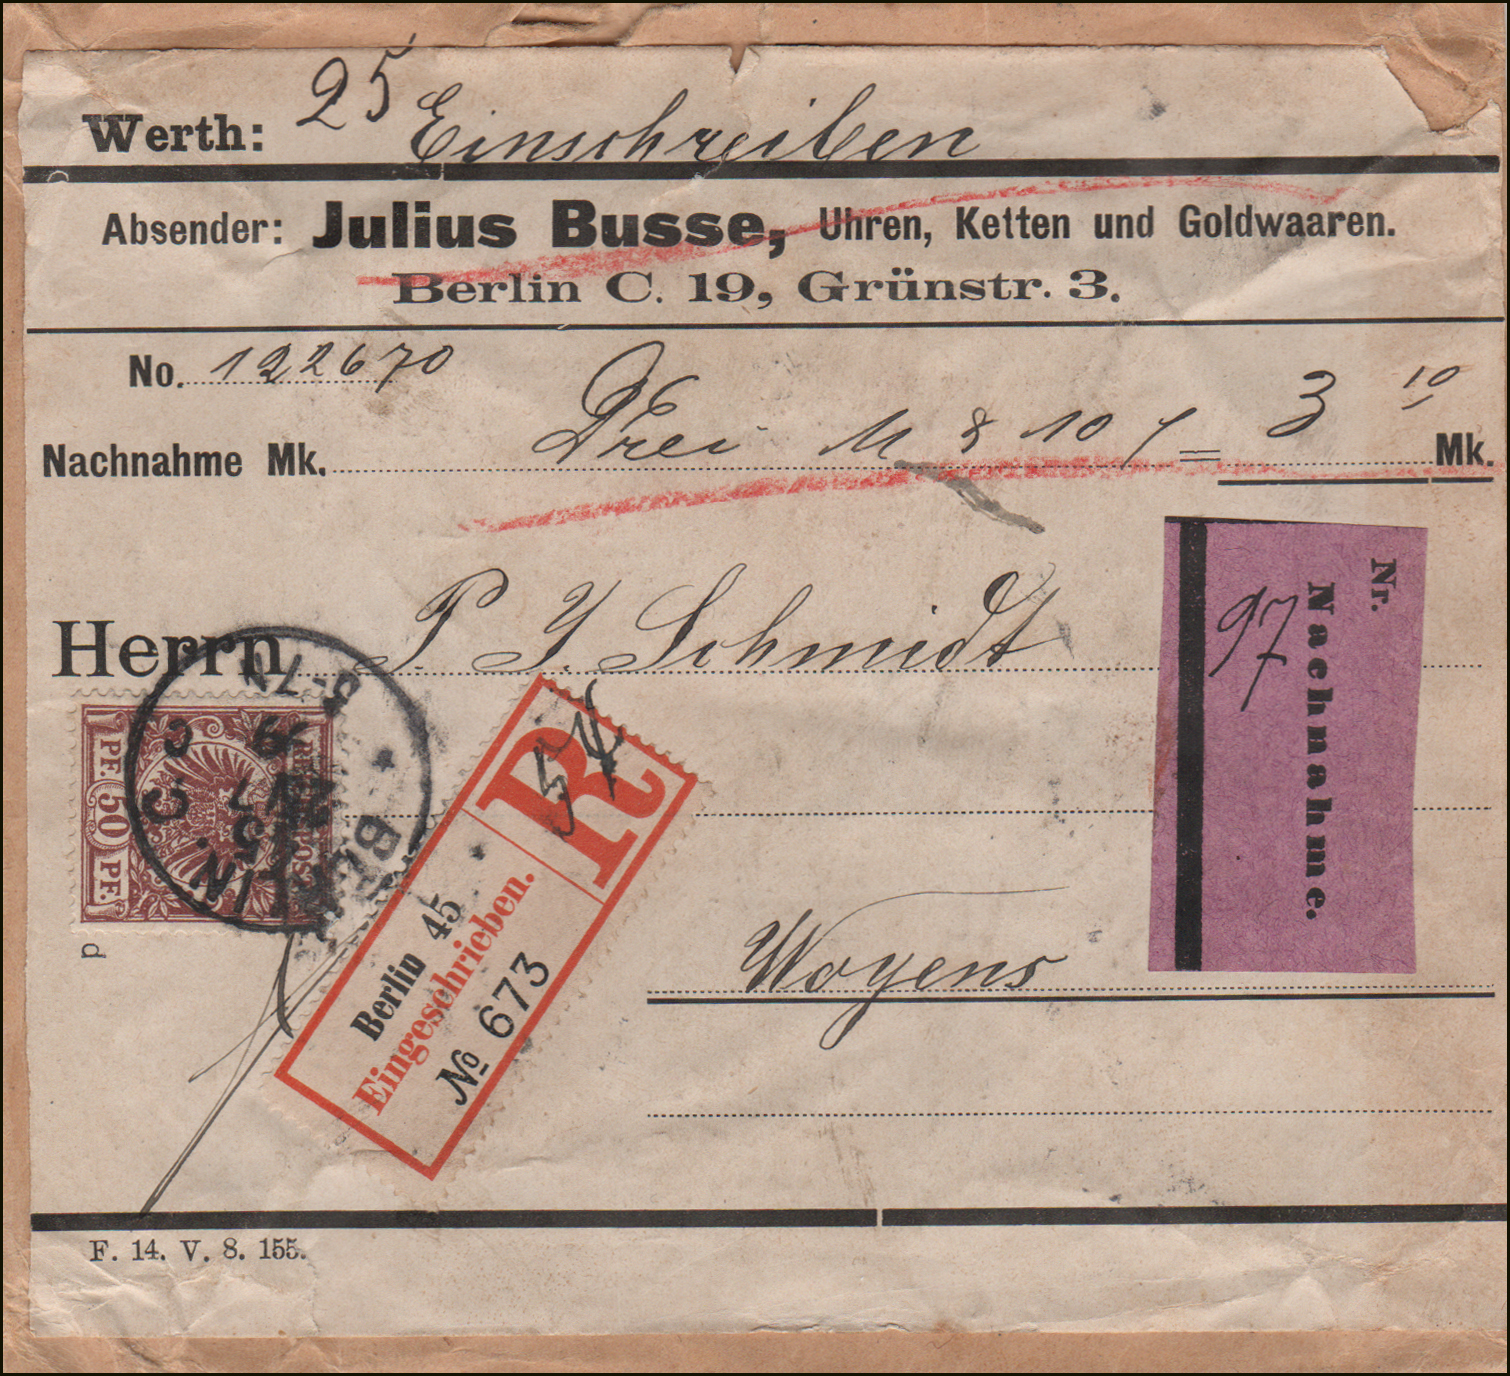 Werth: 25 Einschreiben
Absender: Julius Busse, Uhren, Ketten und Goldwaaren.
Berlin C. 19, Grünstr. 3.
No. 122670
Nachnahme Mk. Drei M & 10 = 3 10 Mk.
Herrn P. J. Schmidt
Woyens
Nr.
Nachnahme.
97
REICHSPOST
PF. 50 PF.
BERLIN
5-7N
C
p
R
54
Berlin 45
Eingeschrieben.
№ 673
F. 14. V. 8. 155.